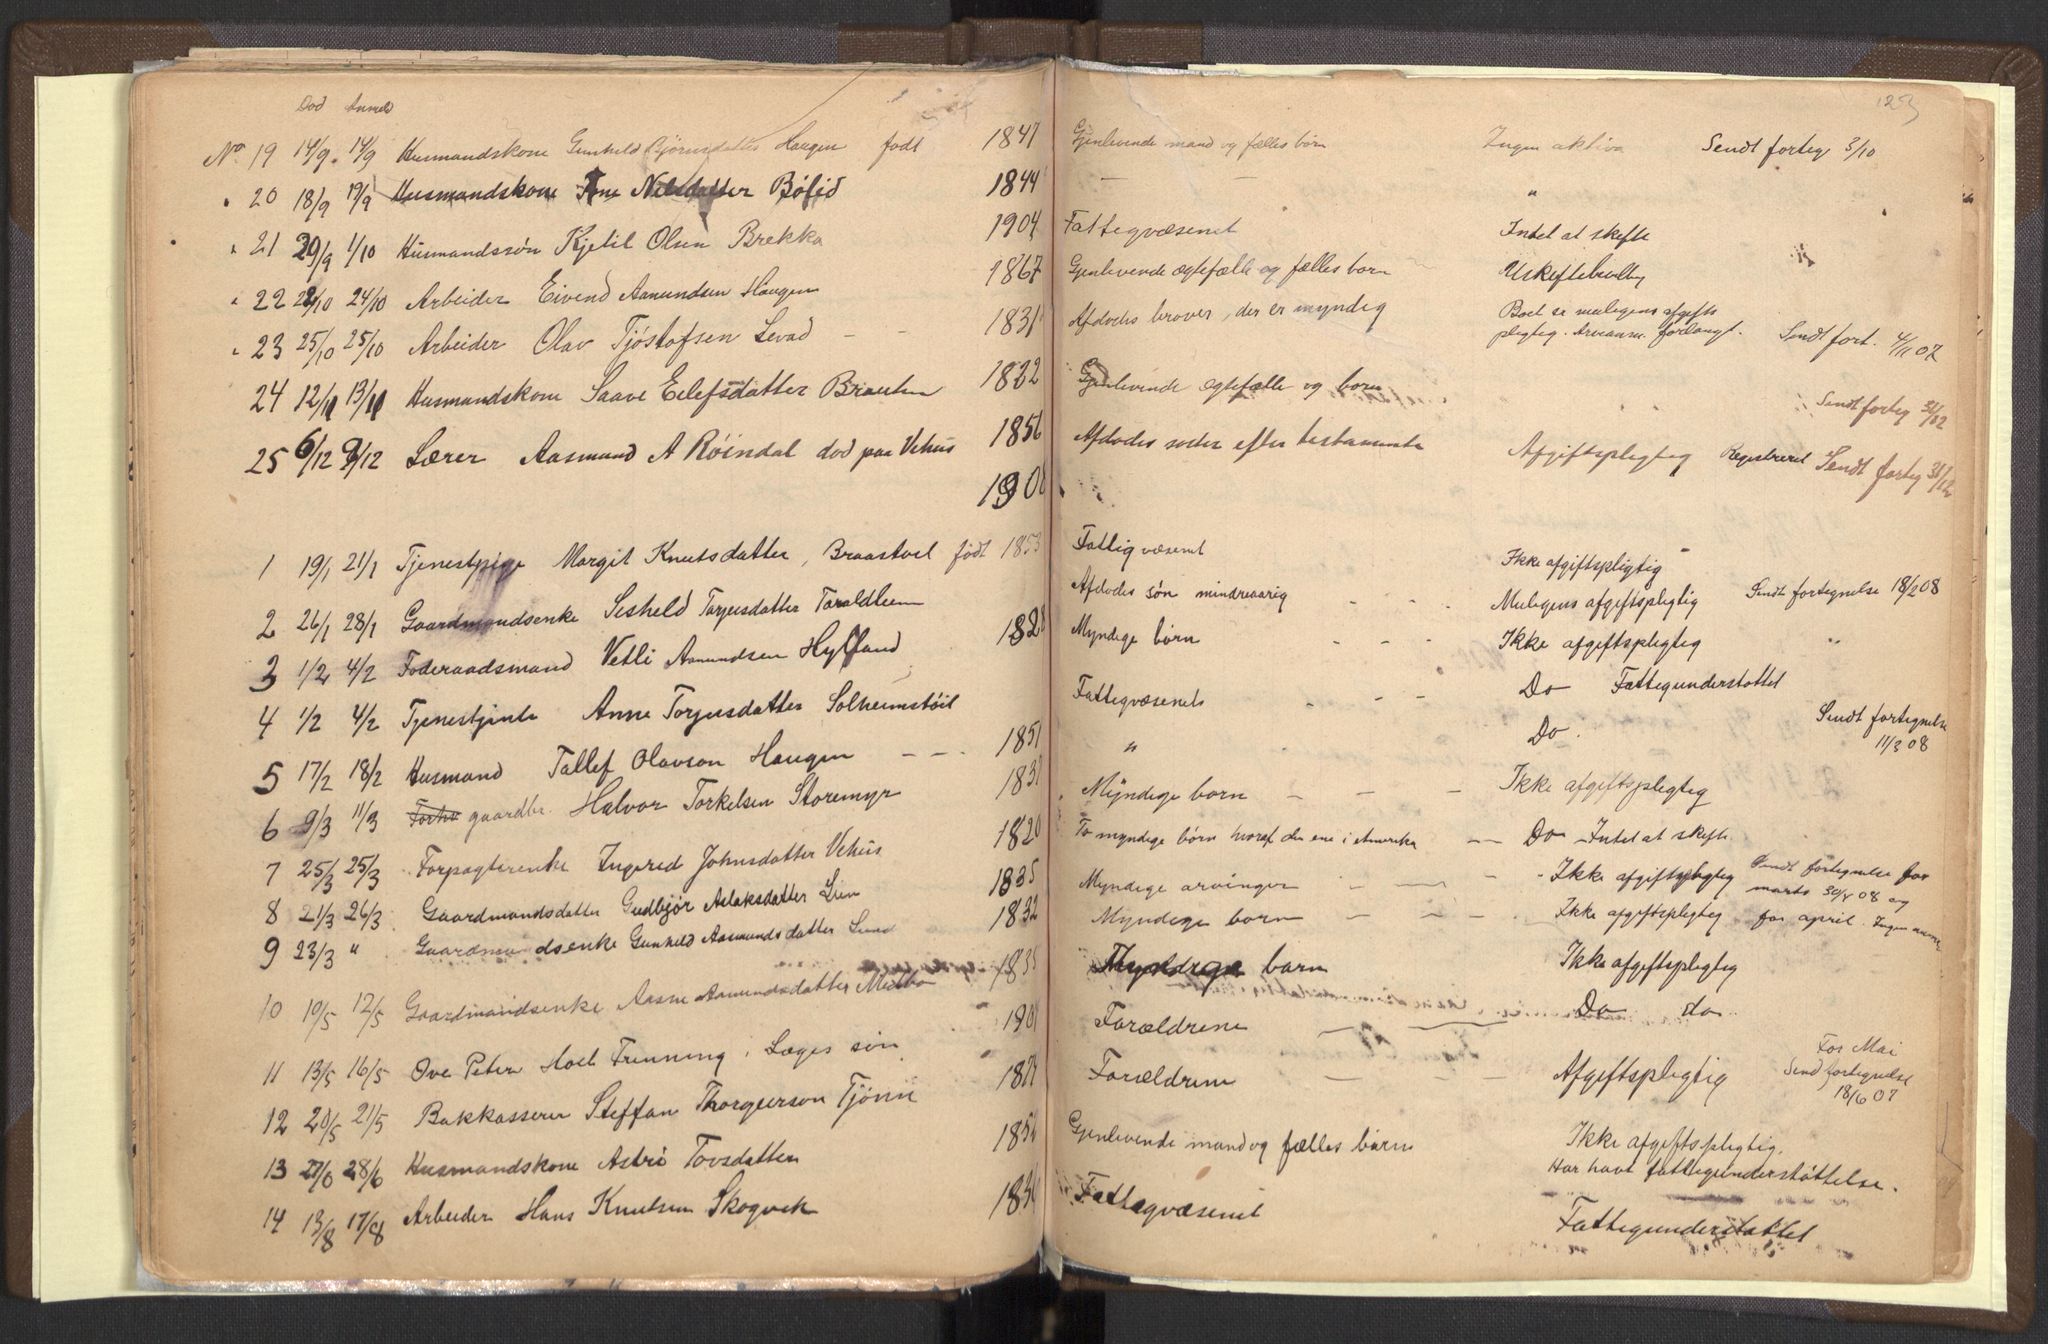 Død Anmeld
123
No 19 14/9 14/9 Husmandskone Gunhild Bjørnsdatter Haugen født 1847 Gjenlevende mand og fælles børn Ingen aktiva Sendt forteg 3/10
" 20 18/9 19/9 Husmandskone Tone Nilsdatter Bøliđ 1844 — — "
" 21 29/9 1/10 Husmandssøn Kjetil Olsen Brekka 1904 Fattigvæsenet Intet at skifte
" 22 22/10 24/10 Arbeider Eivend Aamundsen Haugen 1867 Gjenlevende ægtefælle og fælles børn Uskiftebevilling
" 23 25/10 25/10 Arbeider Olav Tjøstofsen Levad - - 1831 Afdødes brører, der er myndig Boet er muligens afgifts
pligtig. forlangt. Sendt fort. 4/11 07
24 12/11 13/11 Husmandskone Saave Eilefsdatter Brauten 1832 Gjenlevende ægtefælle og børn " Sendt forteg 31/12
25 6/12 9/12 Lærer Aasmund A Røindal død paa Vehus 1856 Afdødes søster efter testamente Afgiftspligtig Registreret Sendt forteg 31/12
1908
1 19/1 21/1 Tjenestpige Margit Knutsdatter, Braastveit født 1853 Fattigvæsenet Ikke afgiftspligtig
2 26/1 28/1 Gaardmandsenke Sigheld Torjusdatter Taraldlien Afdødes søn mindreaarig - - - Muligens afgiftspligtig Sendt fortegnelse 18/2 08
3 1/2 4/2 Føderaadsmand Vetli Aamundsen Hylland 1828 Myndige børn - - - Ikke afgiftspligtig "
4 1/2 4/2 Tjenestjinte Anne Torjusdatter Solheimstøil Fattigvæsenet - - - Do Fattigunderstøttet
5 17/2 18/2 Husmand Tallef Olavson Haugen - - - 1851 " Do. Sendt fortegnelse
11/3 08
6 9/3 11/3 gaardbr. Halvor Torkelsen Storemyr 1831 Myndige børn - - - Ikke afgiftspligtig
7 25/3 25/3 Forpagterenke Ingerid Johnsdatter Vehus 1820 To myndige børn hvoraf den ene i Amerika - - Do - Intet at skifte
8 21/3 26/3 Gaardmandsdatter Gudbjør Aslaksdatter Lien 1835 Myndige arvinger - - - Ikke afgiftspligtig Sendt fortegnelse for
marts 30/4 08 og
9 23/3 " Gaardmandsenke Gunhild Aasmundsdatter Lund 1832 Myndige børn - - - Ikke afgiftspligtig for april. Ingen anm
10 10/5 12/5 Gaardmandsenke Aasne Aamundsdatter Midtbø 1835 Myndige børn Ikke afgiftspligtig
11 13/5 16/5 Ove Peter Holt Trenning, Læges søn 1901 Forældrene - - Do do
12 20/5 21/5 Bakkasserer Steffan Thorgeerson Tjønn 1871 Forældrene - - - Afgiftspligtig For Mai
Send fortegnelse
18/6 07
13 27/6 28/6 Husmandskone Astri Tovsdatter 1852 Gjenlevende mand og fælles børn Ikke afgiftspligtig.
Har havt fattigunderstøttelse.
14 13/8 17/8 Arbeider Hans Knutsen Skogvek 1836 Fattigvæsenet Fattigunderstøttet